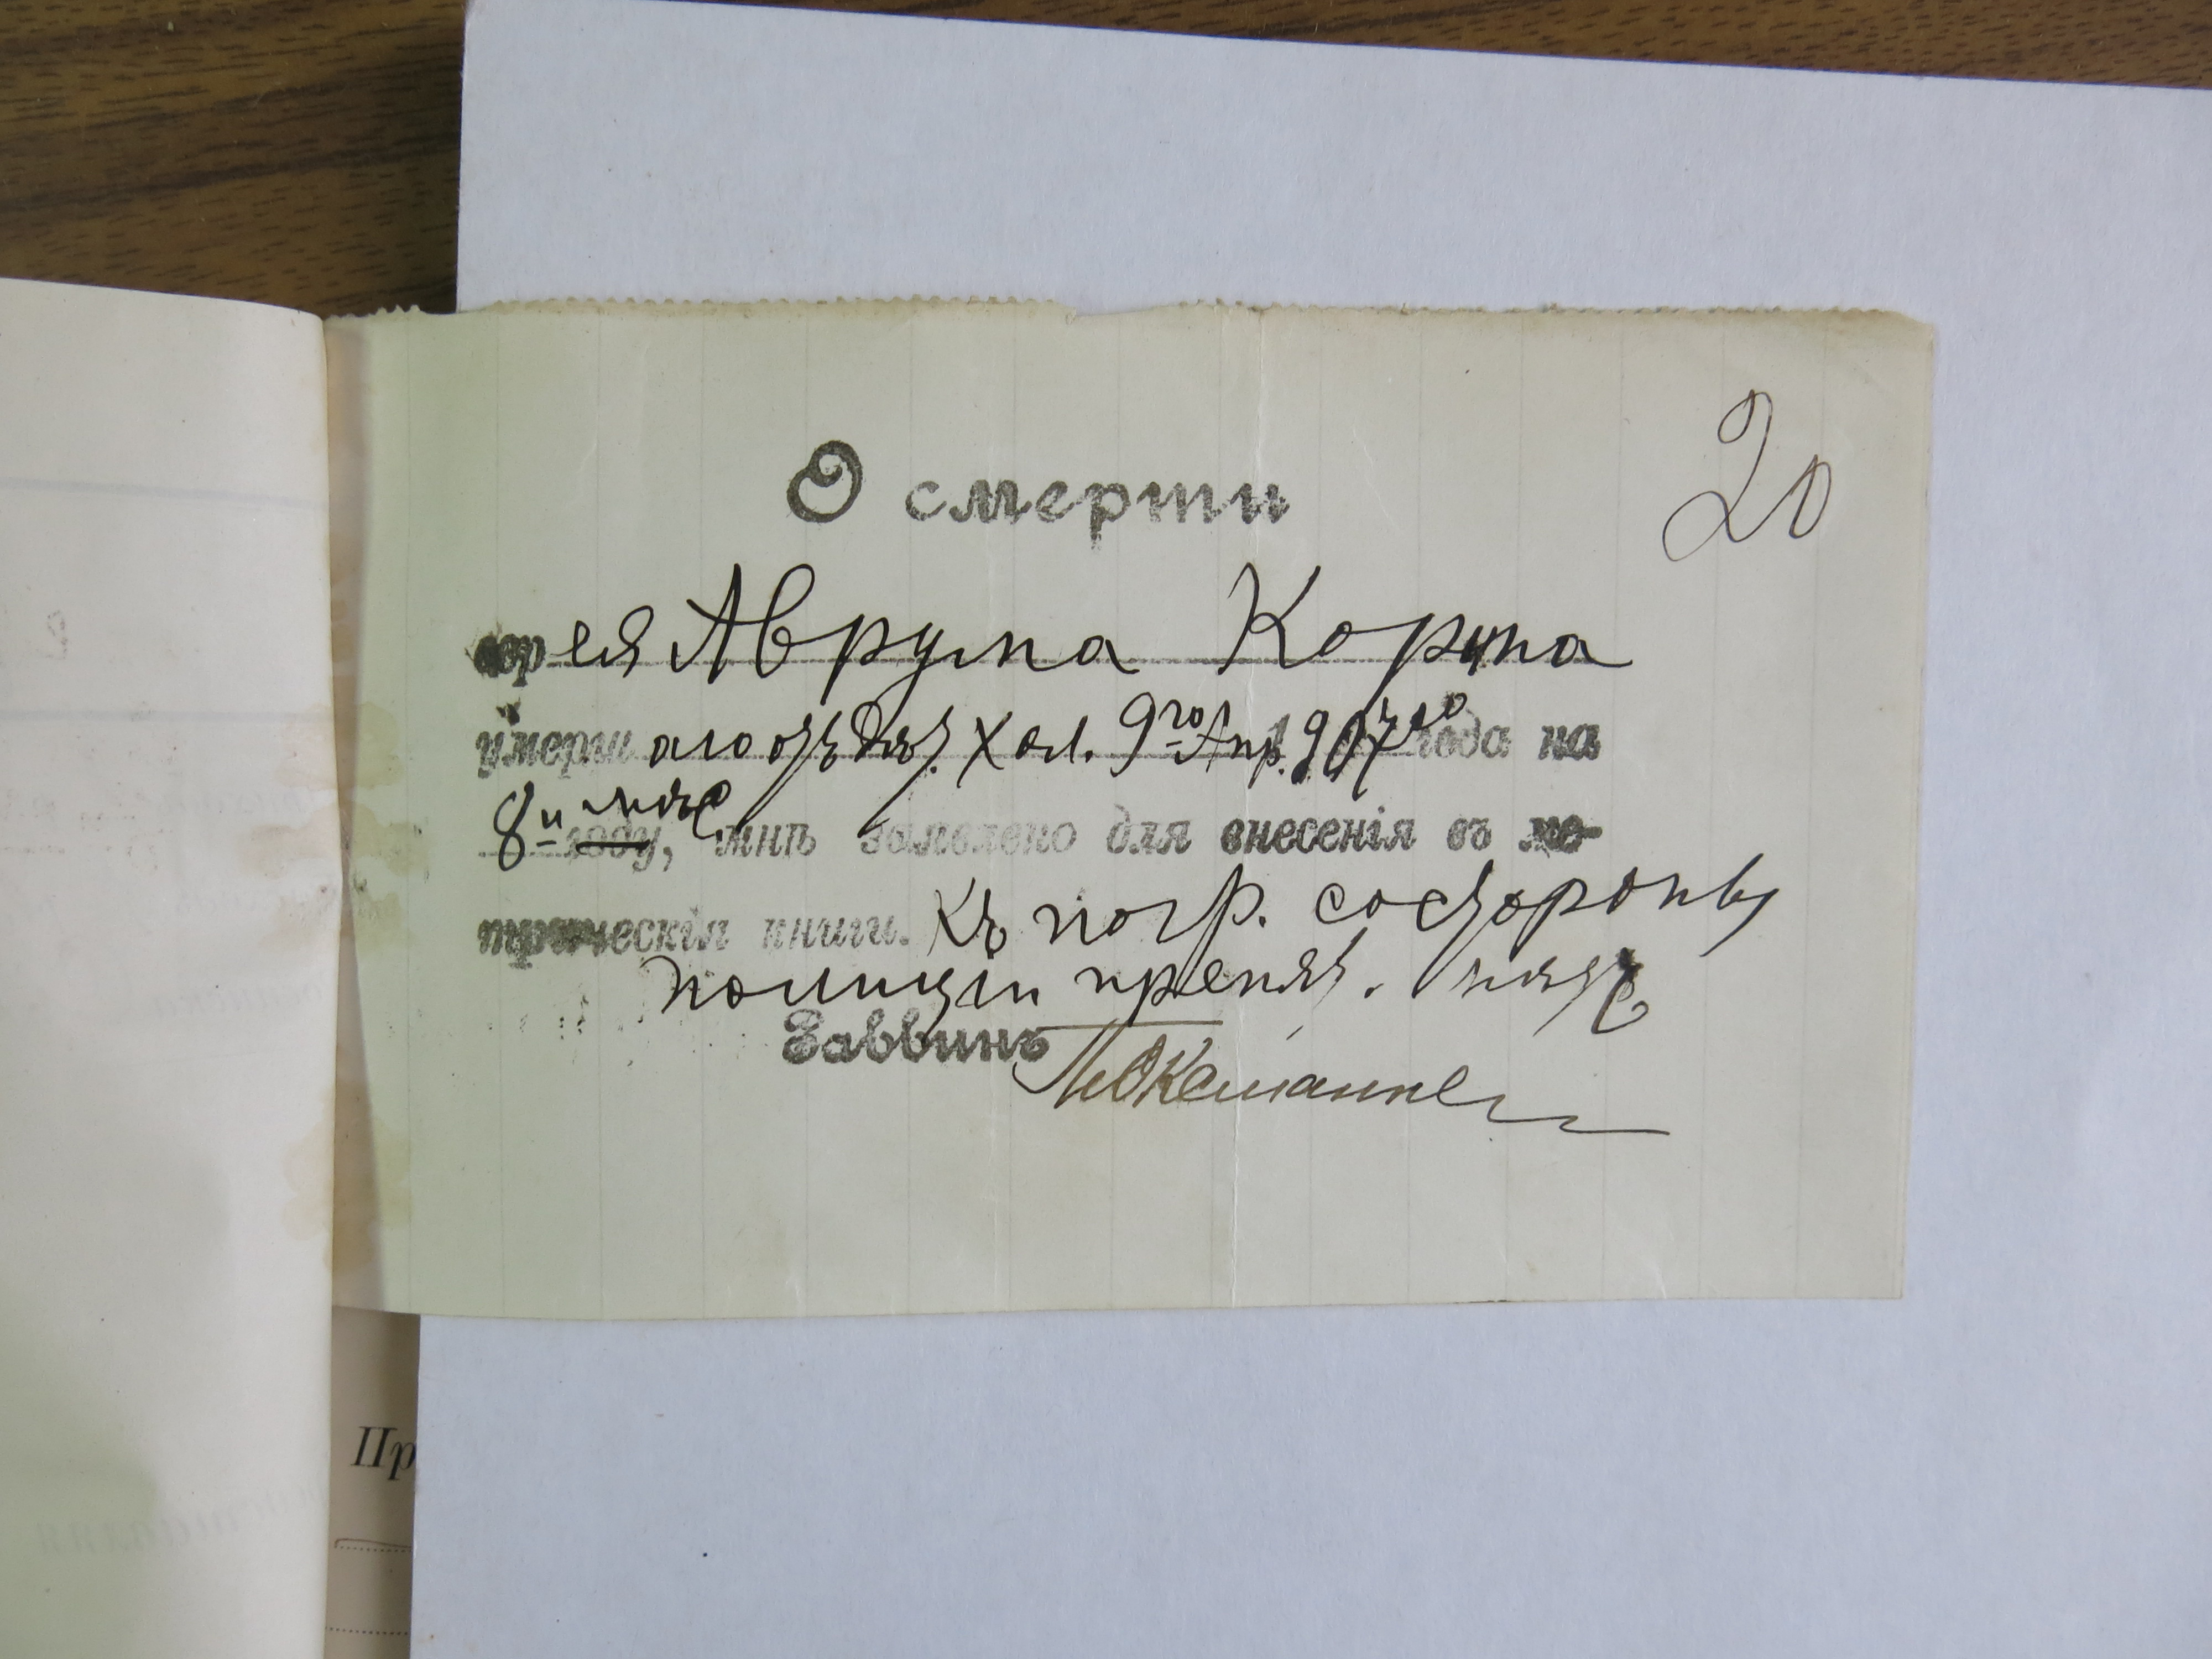 20
О смерти
еврея Аврума Корша
умершаго отъ дѣт. Хол. 9го Апр. 907го года на
8й мѣс году, мнѣ заявлено для внесенія въ ме-
трическія книги. Къ погр. со стороны
полиціи препят. нѣтъ
Заввинъ
Пр